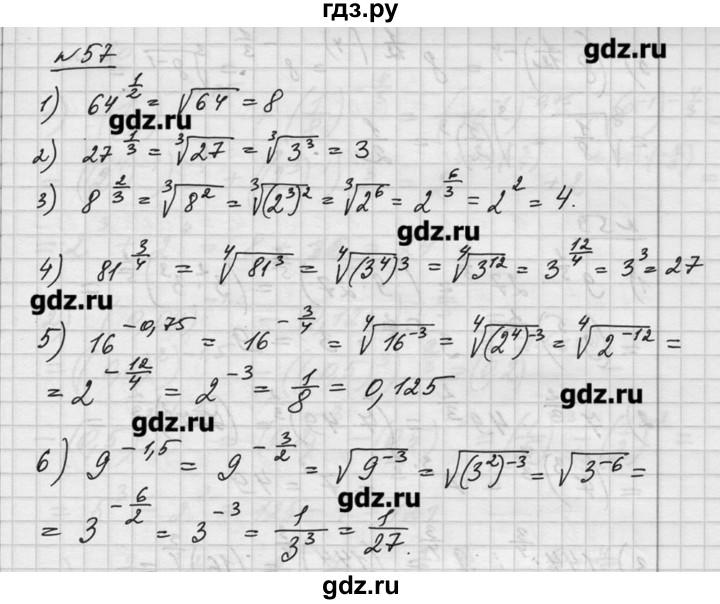 гдз.ру
№57
gdz.ru
1) 64^{1/2} = √64 = 8
gdz.ru
2) 27^{1/3} = ∛27 = ∛3³ = 3
3) 8^{2/3} = ∛8² = ∛(2³)² = ∛2⁶ = 2^{6/3} = 2² = 4.
gdz.ru
4) 81^{3/4} = ∜81³ = ∜(3⁴)³ = ∜3¹² = 3^{12/4} = 3³ = 27
gdz.ru
5) 16^{-0,75} = 16^{-3/4} = ∜16⁻³ = ∜(2⁴)⁻³ = ∜2⁻¹² =
= 2^{-12/4} = 2⁻³ = 1/8 = 0,125
gdz.ru
gdz.ru
6) 9^{-1,5} = 9^{-3/2} = √9⁻³ = √(3²)⁻³ = √3⁻⁶ =
gdz.ru
= 3^{-6/2} = 3⁻³ = 1/3³ = 1/27.
gdz.ru